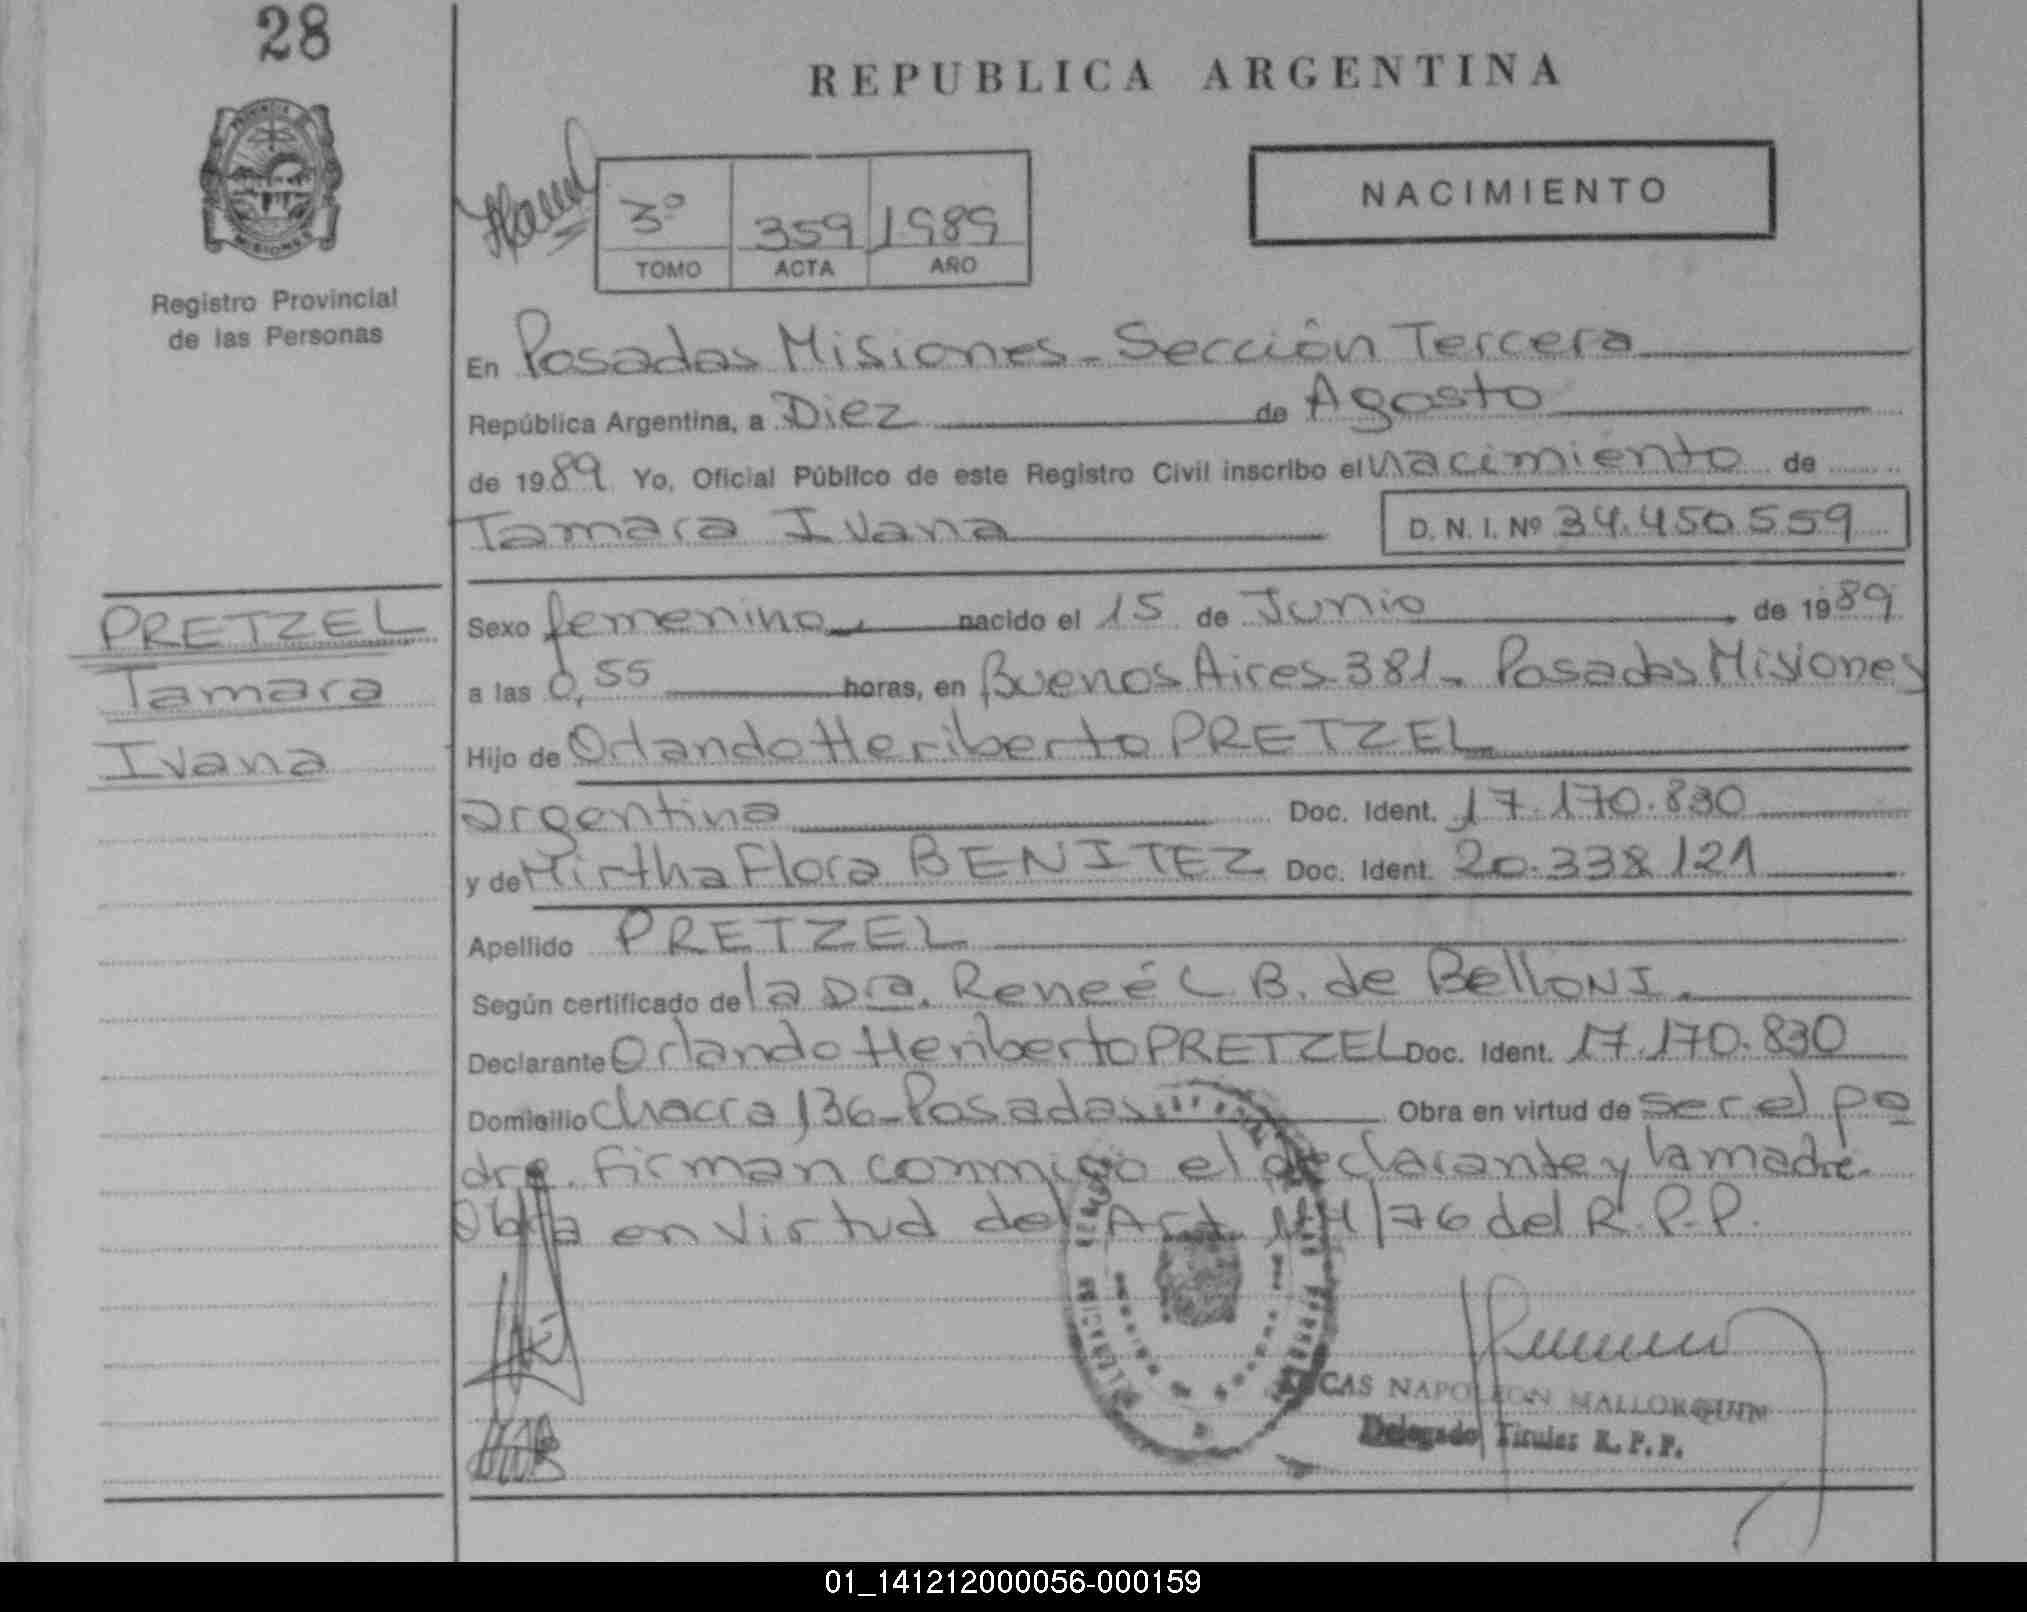 28
REPUBLICA ARGENTINA
PROVINCIA DE
MISIONES
Registro Provincial
de las Personas
NACIMIENTO
3º 359 1989
TOMO ACTA AÑO
En Posadas Misiones - Sección Tercera
República Argentina, a Diez de Agosto
de 1989 Yo, Oficial Público de este Registro Civil inscribo el nacimiento de
Tamara Ivana D. N. I. Nº 34.450.559
PRETZEL
Tamara
Ivana
Sexo femenino nacido el 15 de Junio de 1989
a las 0,55 horas, en Buenos Aires 381 - Posadas Misiones
Hijo de Orlando Heriberto PRETZEL
argentina Doc. Ident. 17.170.830
y de Mirtha Flora BENITEZ Doc. Ident. 20.338.121
Apellido PRETZEL
Según certificado de la Dra. Reneé L B. de BelloNI.
Declarante Orlando Heriberto PRETZEL Doc. Ident. 17.170.830
Domicilio Chacra 136 - Posadas Obra en virtud de ser el pa
dre. Firman conmigo el declarante y la madre.
Obra en virtud del Art. /76 del R.P.P.
CAS NAPOLEON MALLORQUIN
Delegado Titular R. P. P.
01_141212000056-000159